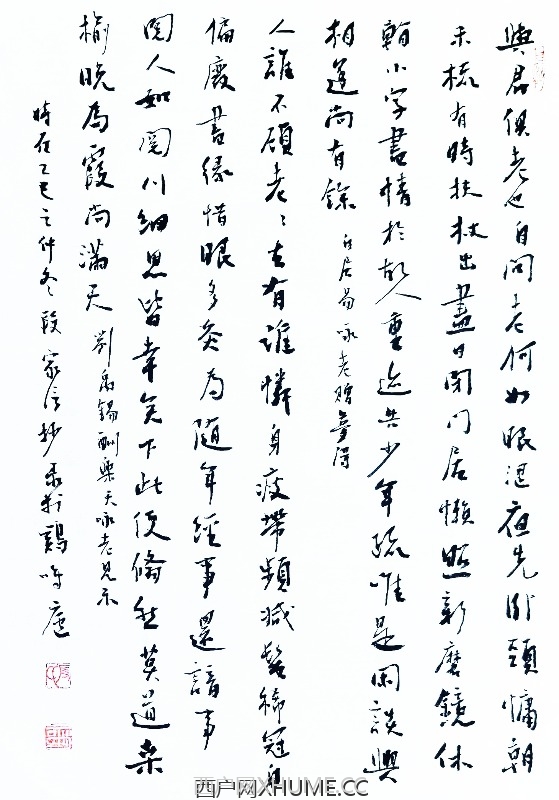 與君俱老也自問老何如眼澀夜先臥頭慵朝
未梳有時扶杖出盡日閉門居懶照新磨鏡休
看小字書情於故人重迹共少年疏唯是閑談興
相逢尚有餘 白居易咏老贈夢得
人誰不顧老々去有誰憐身瘦帶頻減髮稀冠自
偏廢書緣惜眼多灸為隨年經事還諳事
閱人如閱川細思皆幸矣下此便翛然莫道桑
榆晚為霞尚滿天 劉禹錫酬樂天咏老見示
時在乙巳之仲冬段家抄录於鷄鳴廬
西户网XHUME.CC